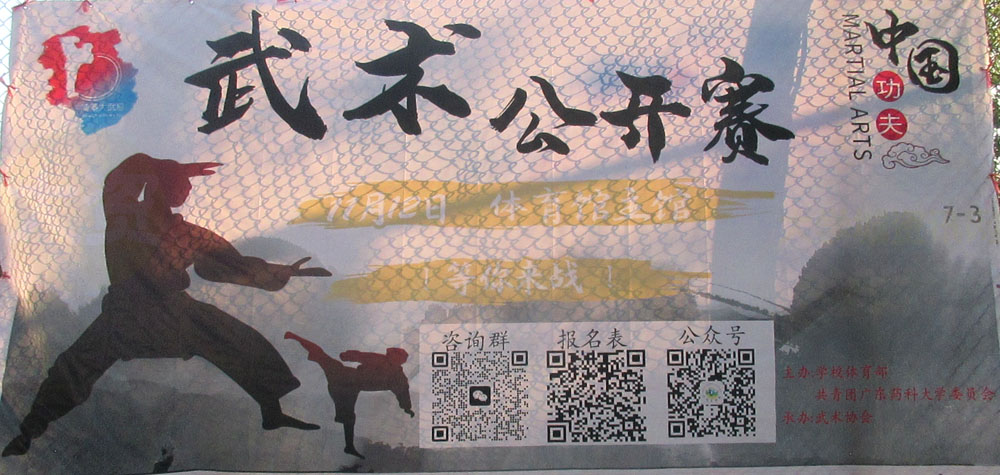 武术公开赛
中国
功夫
MARTIAL ARTS
体育馆主馆
！等你来战！
7-3
咨询群
报名表
公众号
主办:学校体育部
共青团广东药科大学委员会
承办:武术协会